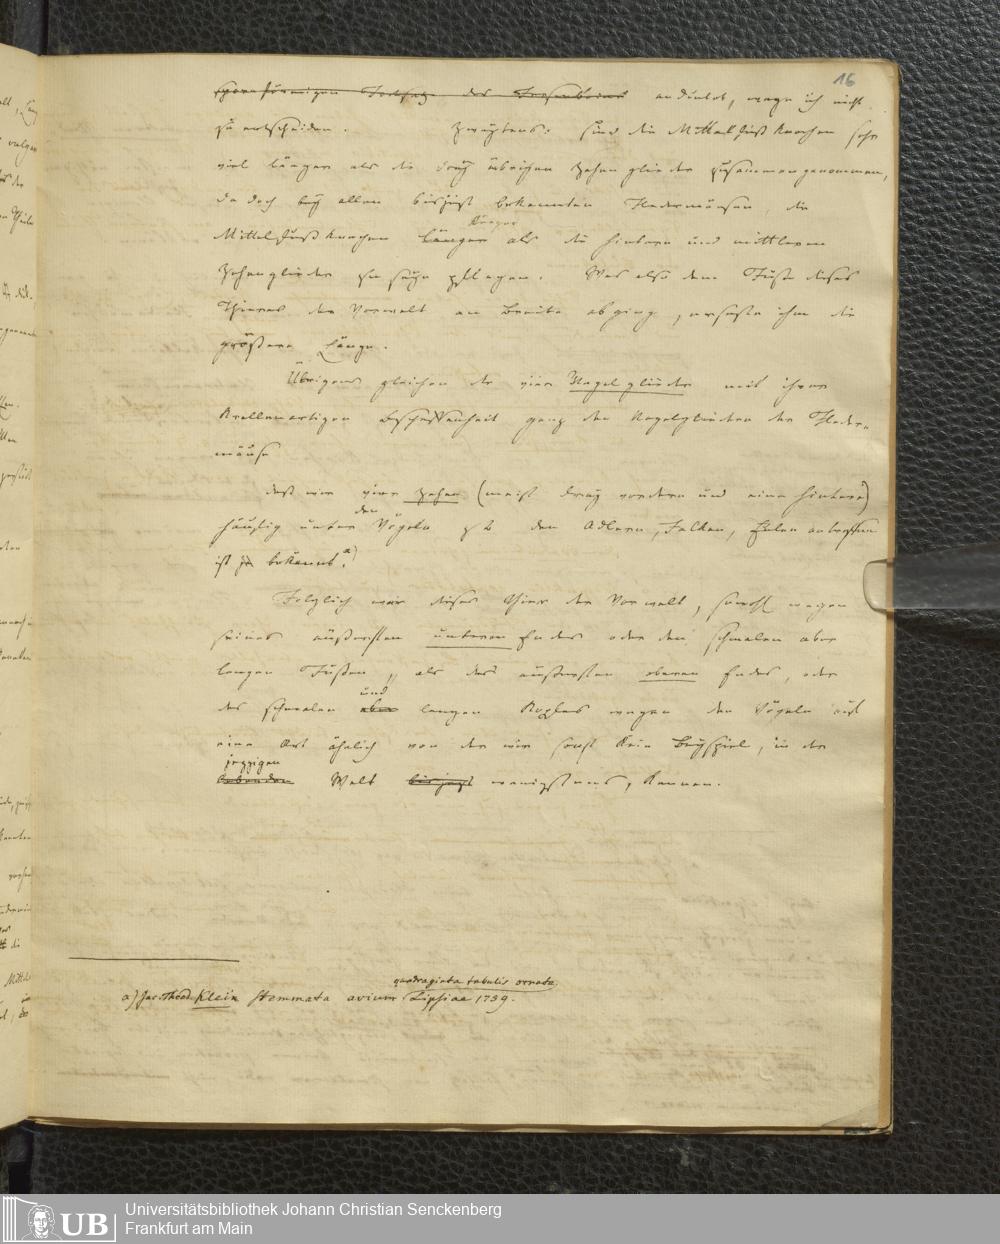 16
spornförmigen Fortsatz des Fersenbeins andeutet, wage ich nicht
zu entscheiden. Zweytens: sind die Mittelfußknochen sehr
viel länger als die drey übrigen Zehenglieder zusammengenommen,
da doch bey allen bisjezt bekannten Fledermäusen, die
Mittelfußknochen kürzer als die hintern und mittleren
Zehenglieder zu seyn pflegen. Was also dem Fuße dieses
Thieres der Vorwelt an Breite abging, ersezte ihm die
größere Länge.
Übrigens gleichen die vier Nagelglieder mit ihrer
Krallenartigen Beschaffenheit ganz den Nagelgliedern der Fleder-
mäuse
daß wir vier Zehen (meist drey vordere und eine hintere)
häufig unter den Vögeln z B den Adlern, Falken, Eulen antreffen
ist ja bekannt. a)
Folglich war dieses Thier der Vorwelt, sowohl wegen
seines äußersten unteren Endes oder den schmalen aber
langen Füßen, als des äußersten oberen Endes, oder
des schmalen aber und langen Kopfes wegen den Vögeln auf
eine Art ähnlich von der wir sonst kein Beyspiel, in der
lebenden jezzigen Welt bisjezt wenigstens, kennen.
a) Jac. Theod. Klein Stemmata avium quadraginta tabulis ornata Lipsiae 1759.
Universitätsbibliothek Johann Christian Senckenberg
Frankfurt am Main
UB